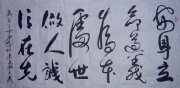 安身立
命道義
為本
處世
做人誠
信在先